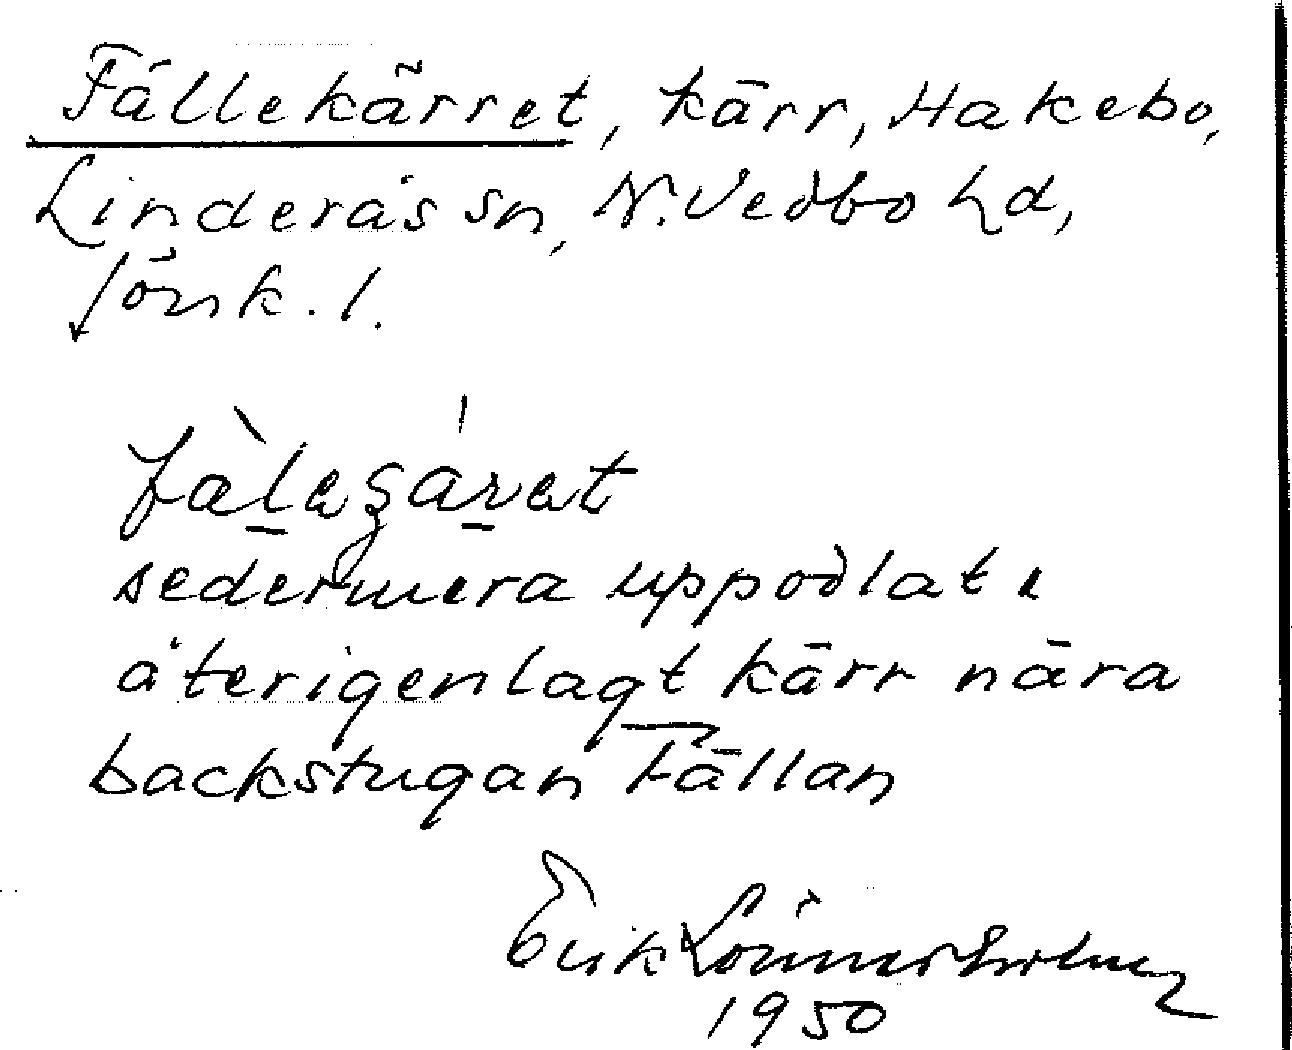 Fällekärret, kärr, Hakebo,
Linderås sn, N. Vedbo hd,
Jönk. l.
sedermera uppodlat o
återigenlagt kärr nära
backstugan Fällan
Erik Lönnerholm
1950